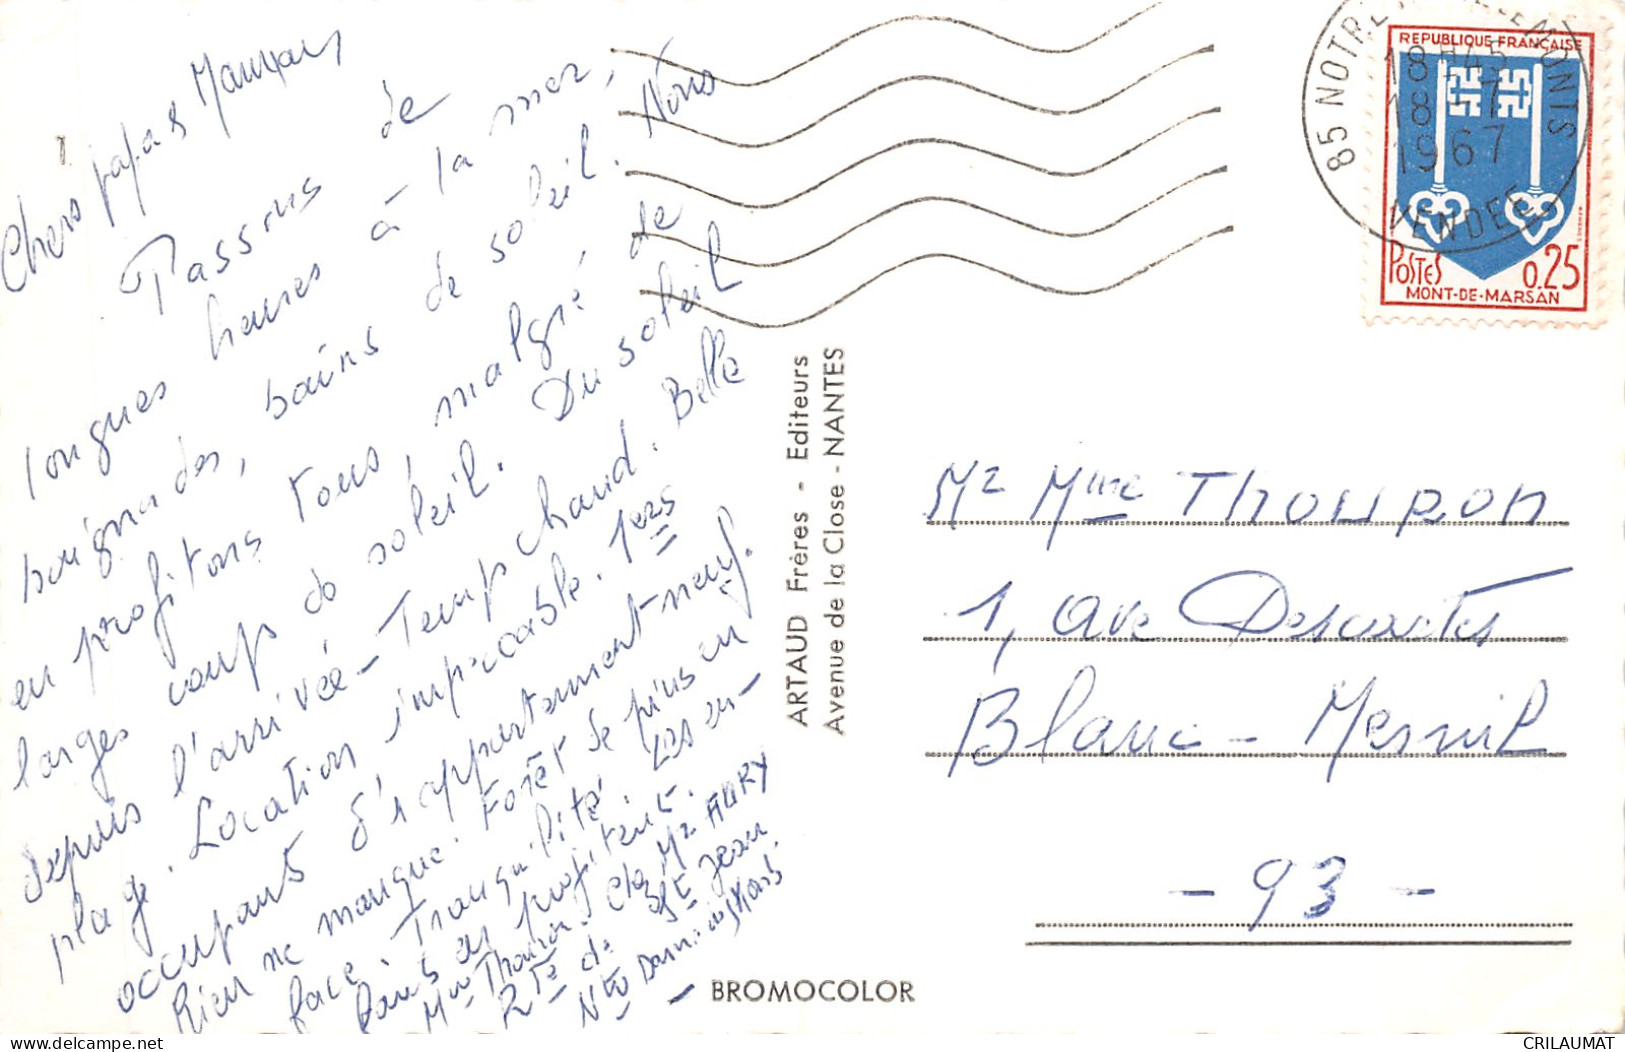 Chers papas Mamans
Passons de
longues heures à la mer,
baignades, bains de soleil. Nous
en profitons tous, malgré de
larges coups de soleil. Du soleil
depuis l'arrivée - Temps chaud. Belle
plage. Location impeccable. 1ers
occupants d'1 appartement neuf.
Rien ne manque. Forêt de pins en
face. Tranquillité. Les en-
fants en profitent.
Mme Thouron c/o Mr AURY
Rte de St Jean
Nte Dame des Monts
ARTAUD Frères - Editeurs
Avenue de la Close - NANTES
BROMOCOLOR
85 NOTRE MONTS
18H45
18-7
1967
VENDEE
REPUBLIQUE FRANÇAISE
POSTES 0,25
MONT-DE-MARSAN
Mr Mme THOURON
1, Ave Descartes
Blanc-Mesnil
- 93 -
delcampe.net
CRILAUMAT